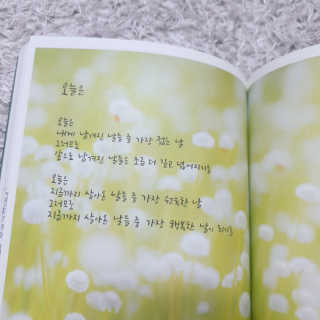 오늘은
오늘은
내게 남겨진 날들 중 가장 젊은 날
그러므로
앞으로 남겨진 날들은 조금 더 길고 넓어지기를
오늘은
지금까지 살아온 날들 중 가장 날
그러므로
지금까지 살아온 날들 중 가장 행복한 날이 되기를